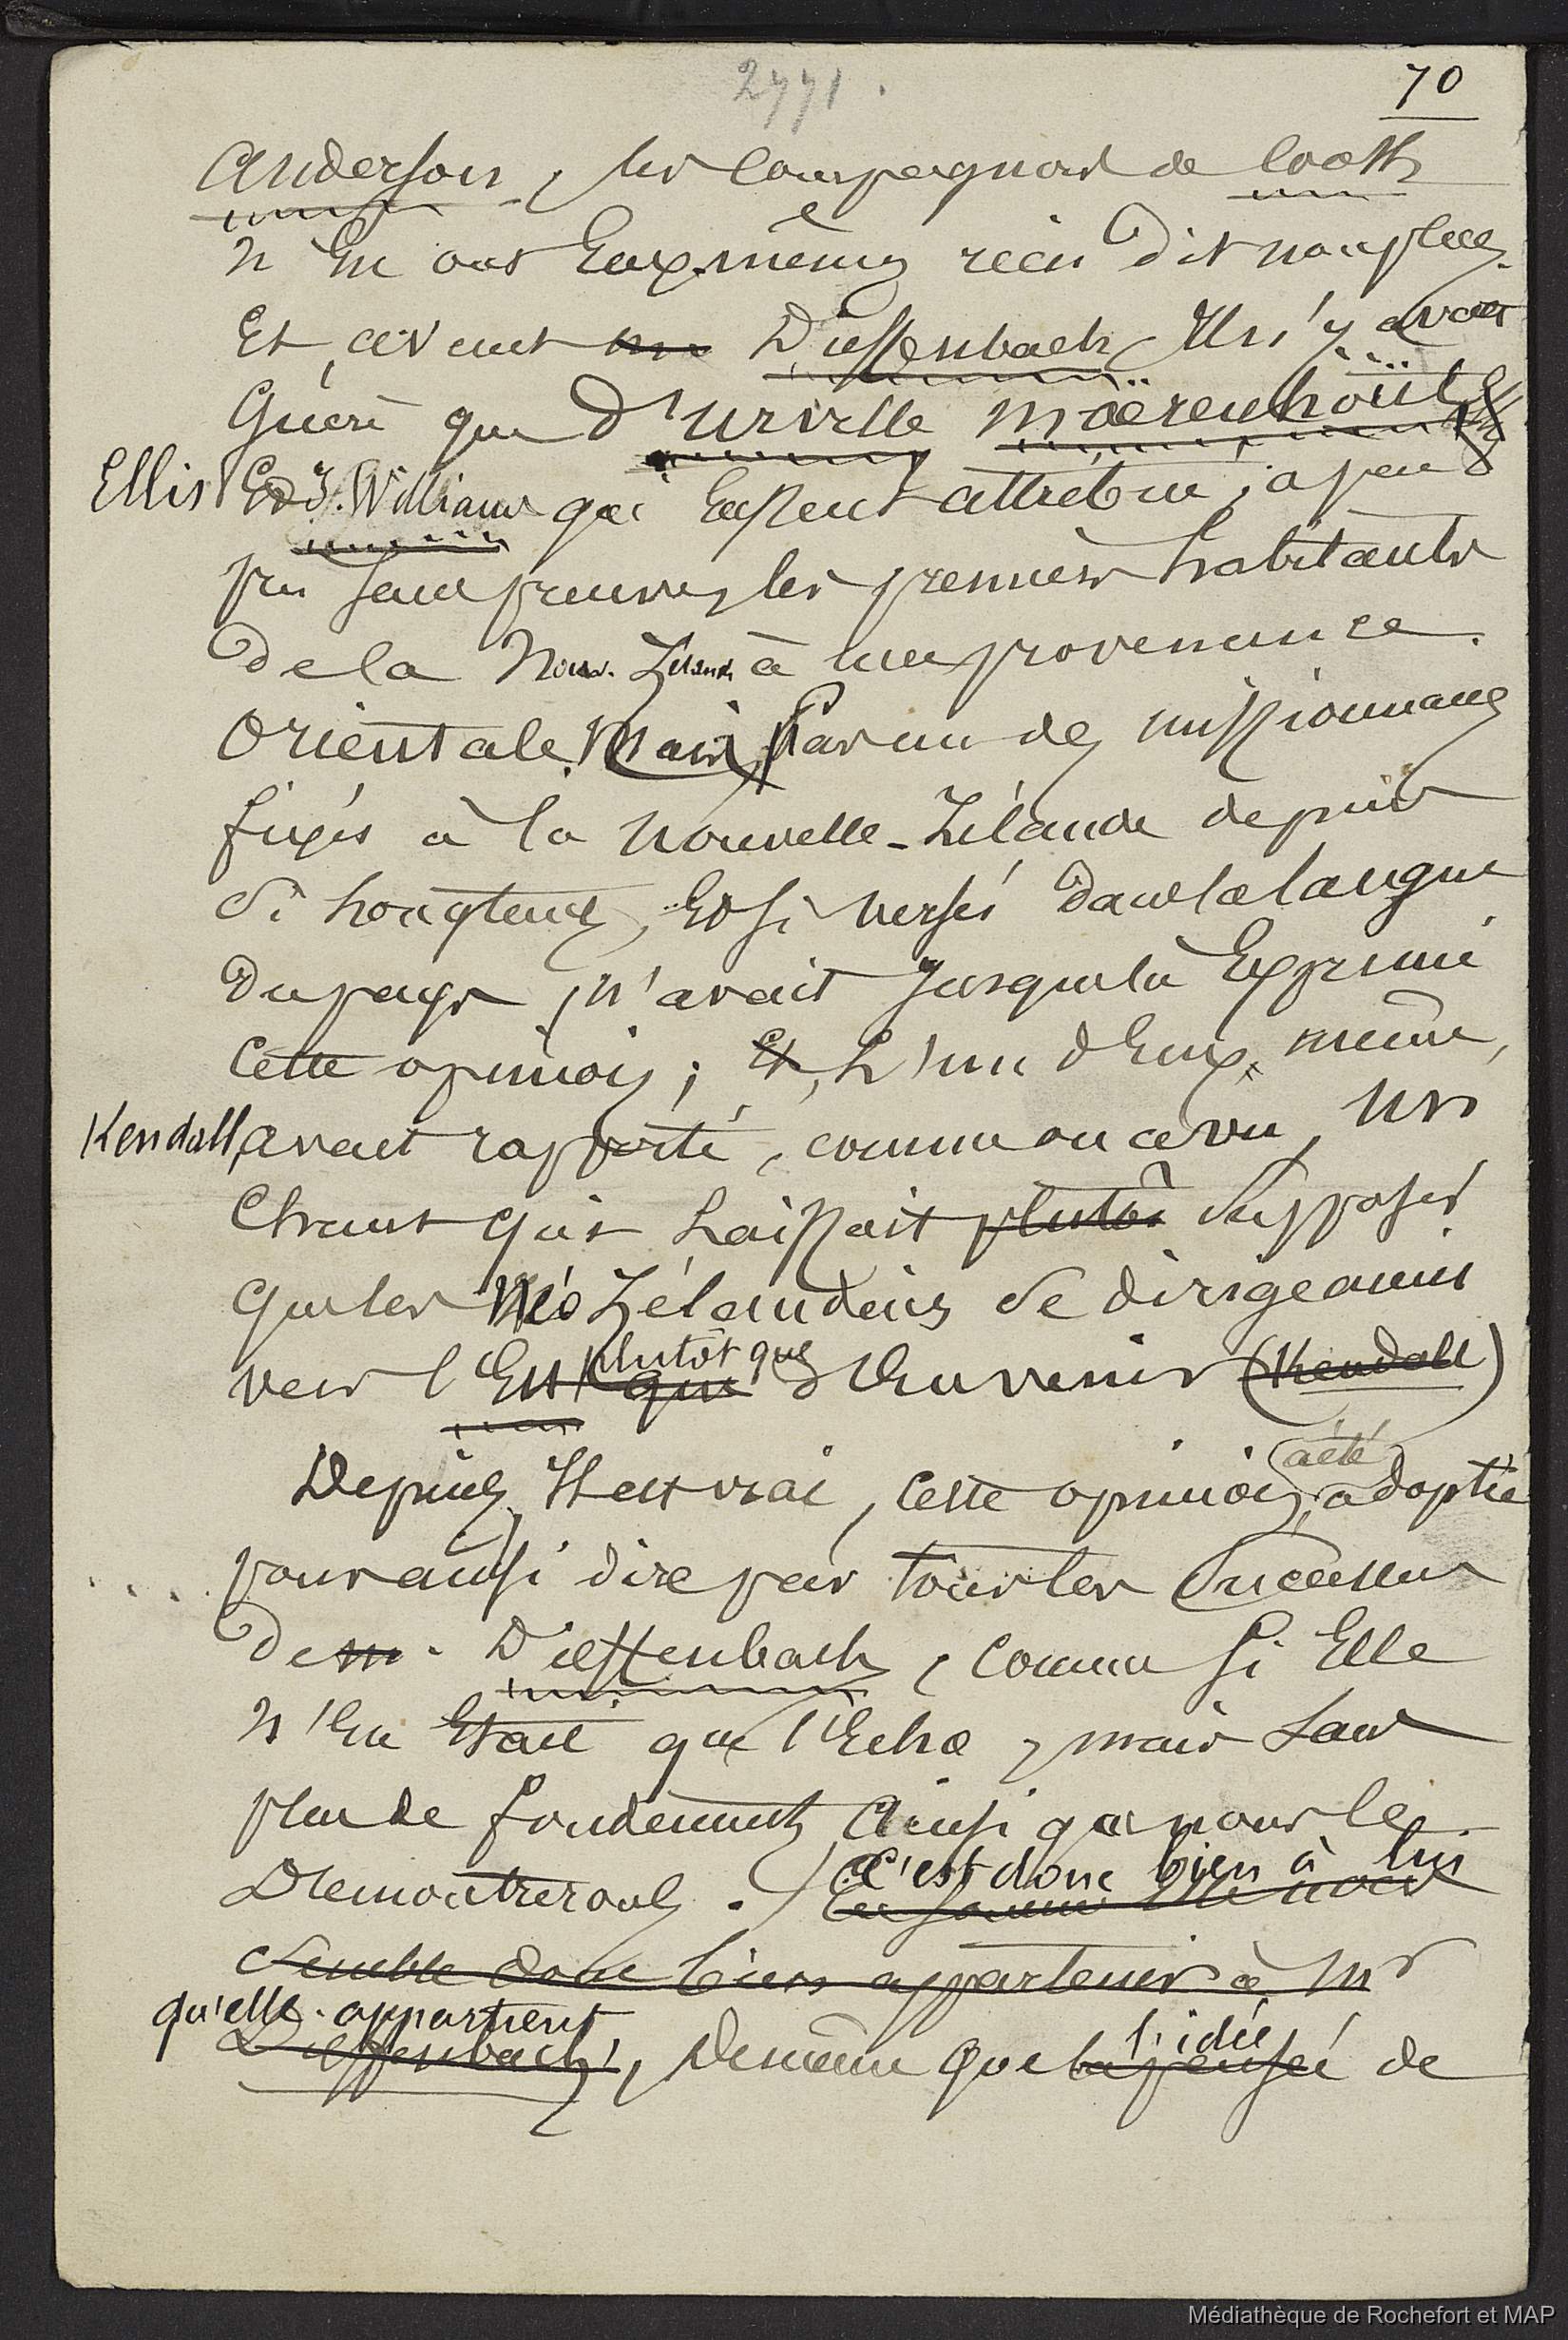 2771.
70
Anderson, les compagnons de Cook
n'en ont eux-mêmes rien dit non plus.
Et avant Dieffenbach, il n'y avait
guère que d'Urville Moërenhoüt
Ellis Et J. Williams qui eussent attribué, à peu
près sans preuves, les premiers habitants
de la Nouv. Zélande à une provenance
orientale. Mais pas un des missionnaires
fixés à la Nouvelle-Zélande depuis
si longtemps, et si versés dans la langue
du pays, n'avait jusque là exprimé
cette opinion; L'un d'eux même,
Kendall, avait rapporté, comme on a vu, un
chant qui laissait plutôt supposer
que les Néo Zélandais se dirigeaient
vers l'Est plutôt que d'en venir (Kendall)
Depuis, il est vrai, cette opinion a été adoptée
pour ainsi dire par tous les successeurs
de m. Dieffenbach, comme si elle
n'en était que l'écho, mais sans
plus de fondements ainsi que nous le
Démontrerons. C'est donc bien à lui
En somme elle nous
semble donc bien appartenir à Mr
qu'elle appartient
Dieffenbach, de même que la pensée l'idée de
Médiathèque de Rochefort et MAP